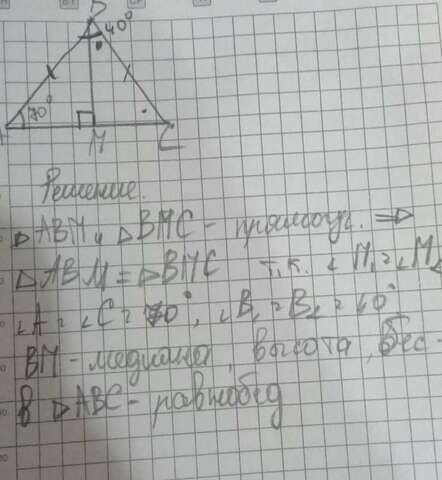 B
40°
70°
M
C
Решение.
△ABM и △BMC - прямоуг. ⇒
△ABM = △BMC т.к. ∠M₁=∠M₂
∠A = ∠C = 70°, ∠B₁ = B₂ =
BM - медиана, высота, бес-
В △ABC - равнобед